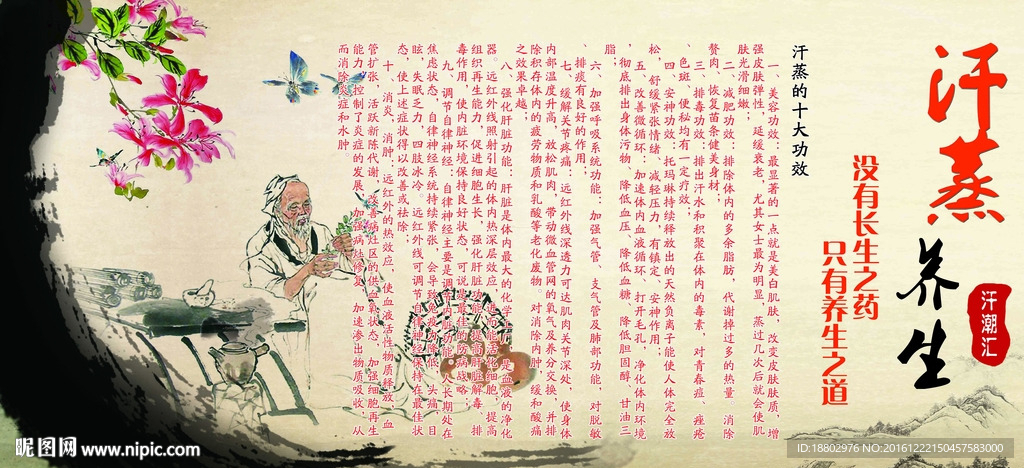 汗蒸
养生
汗潮汇
没有长生之药
只有养生之道
汗蒸的十大功效
一、美容功效：最显著的一点就是美白肌肤，改变皮肤肤质，增
强皮肤弹性，延缓衰老，尤其女士最为明显，蒸过几次后就会使肌
肤光滑细嫩；
二、减肥功效：排除体内的多余脂肪，代谢掉过多的热量，消除
赘肉、恢复苗条健美身材；
三、排毒功效：排出汗水和积聚在体内的毒素，对青春痘、痤疮
、色斑、便秘均有一定疗效，
四、安神功效：托玛琳持续释放出的天然负离子能使人体完全放
松，舒缓紧张情绪、减轻压力，有镇定、安神作用，
五、改善微循环：加速体内血液循环，打开毛孔，净化体内环境
，彻底排出身体污物、降低血压、降低血糖、降低胆固醇、甘油三
脂；
六、加强呼吸系统功能：加强气管、支气管及肺部功能，对脱敏
、排痰有良好的作用，
七、缓解关节疼痛：远红外线深透力可达肌肉关节深处，使身体
内部温度升高，放松肌肉，带动微血管网的氧气及养分交换，并排
除积存体内的疲劳物质和乳酸等老化废物。对消除内肿，缓和酸痛
之效果卓越；
八、强化肝脏功能：肝脏是体内最大的化学工厂，是血液的净化
器。远红外线照射引起的体内热深层效应，进而能活化细胞，提高
组织再生能力，促进细胞生长，强化肝脏功能，提高肝脏解毒、排
毒作用，使内脏环境保持良好状态，可说是最佳的防病战略；
九、调节自律神经：自律神经主要是调节内脏功能，人长期处在
焦虑状态，自律神经系统持续紧张，会导致免疫力降低，头痛，目
眩，失眠乏力，四肢冰冷。远红外线可调节自律神经保持在最佳状
态，使上述症状得以改善或祛除；
十、消炎、消肿：远红外的热效应，使血液活性物质释放，血
管扩张，活跃新陈代谢，改善病灶区的供血氧状态，加强细胞再生
能力，控制了炎症的发展，加强病灶修复，加速渗出物质吸收，从
而消除炎症和水肿。
昵图网 www.nipic.com
ID:18802976 NO:20161222150457583000